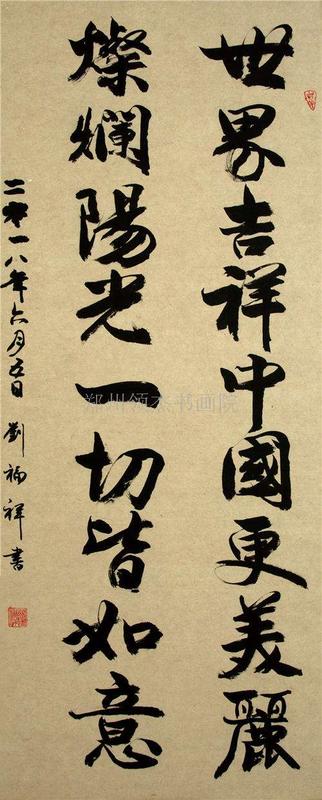 世界吉祥中國更美麗
燦爛陽光一切皆如意
二零一八年六月五日 劉福祥書
郑州领杰书画院